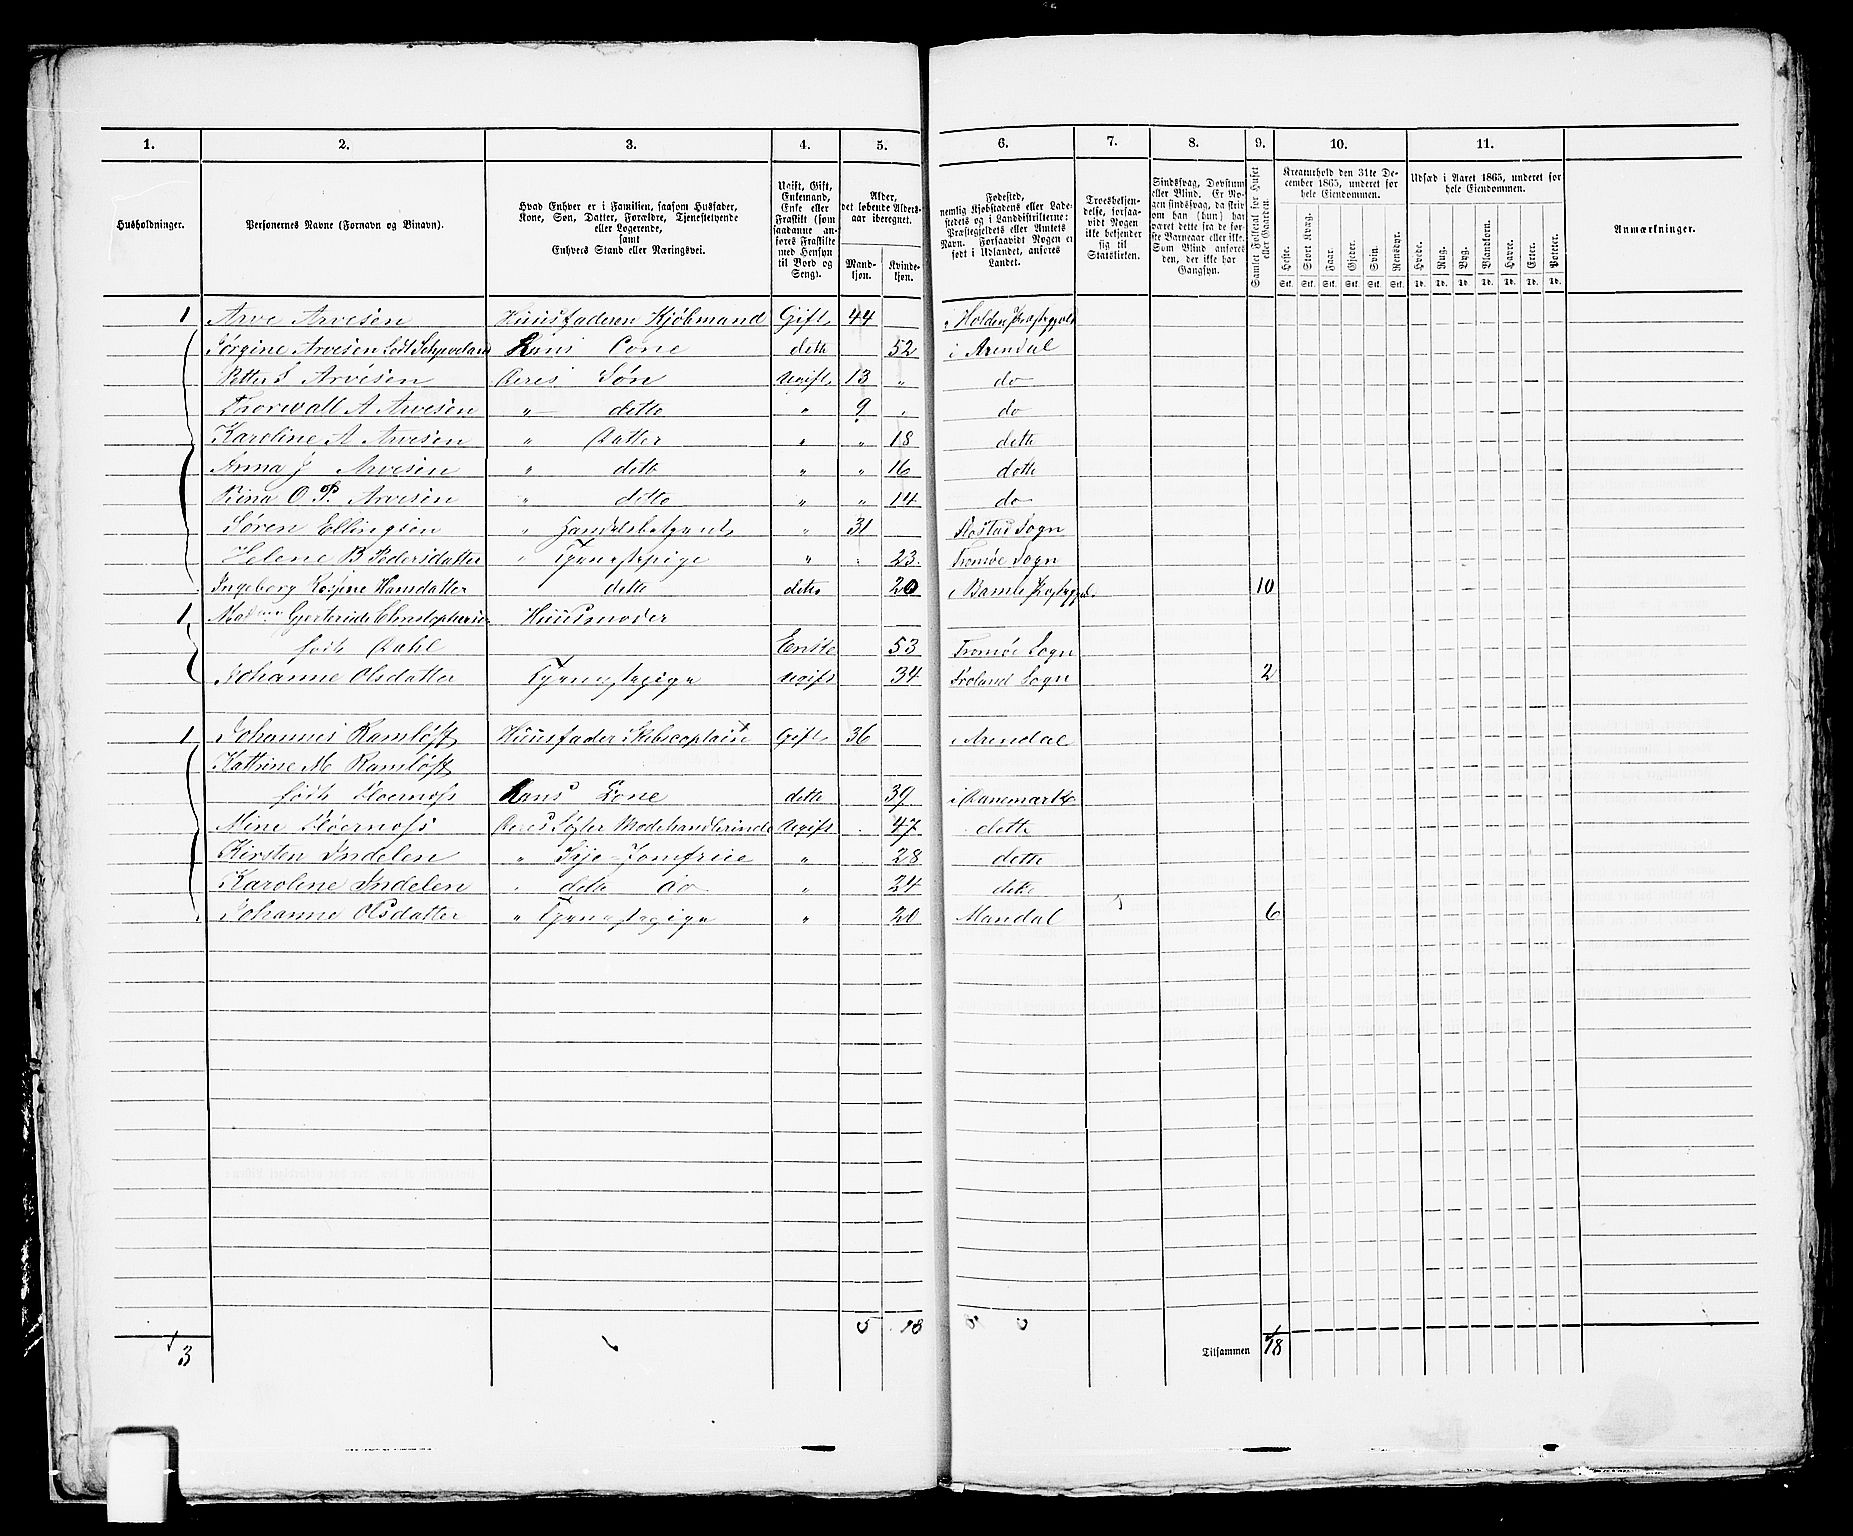 1. 2. 3. 4. 5. 6. 7. 8. 9. 10. 11.
Husholdninger.
Personernes Navne (Fornavn og Binavn).
Hvad Enhver er i Familien, saasom Husfader,
Kone, Søn, Datter, Forældre, Tjenestetyende
eller Logerende,
samt
Enhvers Stand eller Næringsvei.
Ugift, Gift,
Enkemand,
Enke eller
Fraskilt (som
saadanne an-
føres Fraskilte
med Hensyn
til Bord og
Seng).
Alder,
det løbende Alders-
aar iberegnet.
Mand-
kjøn.
Kvinde-
kjøn.
Fødested,
nemlig Kjøbstadens eller Lade-
stedets og i Landdistrikterne:
Præstegjeldets eller Amtets
Navn. Forsaavidt Nogen er
født i Udlandet, anføres
Landet.
Troesbekjen-
delse, forsaa-
vidt Nogen
ikke bekjender
sig til
Statskirken.
Sindssvag, Døvstum
eller Blind. Er No-
gen sindssvag, da skriv
om han (hun) har
været dette fra de før-
ste Barneaar eller ikke.
Som Blind anføres
den, der ikke har
Gangsyn.
Samlet Folketal for Huset
eller Gaarden.
Kreaturhold den 31te De-
cember 1865, underet for
hele Eiendommen.
Heste. Stort Kvæg. Faar. Gjeder. Svin. Rensdyr.
Stk. Stk. Stk. Stk. Stk. Stk.
Udsæd i Aaret 1865, underet for
hele Eiendommen.
Hvede. Rug. Byg. Blandkorn. Havre. Erter. Poteter.
Td. Td. Td. Td. Td. Td. Td.
Anmærkninger.
1 Arve Arvesen Huusfaderen Kjøbmand Gift 44 i Holden Præstegjeld
Sørgine Arvesen født Schjeveland Huns Cone dette 52 i Arendal
Petter S Arvesen Deres Søn Ugift 13 " do
Thorwall A Arvesen " dette " 9 do
Karoline A Arvesen " Datter " " 18 dette
Anna J Arvesen " dette " " 16 dette
Rina O P. Arvesen " dette " " 14 do
Søren Ellingsen " Handelsbetjent " 31 Sogn
Helene B Pedersdatter " Tjenestepige " 23 Tromøe Sogn
Ingeborg Rosine Hansdatter dette dette 20 i Bamle Prestegjel. 10
1 Mad Gjerterude Christophersen Huusmoder
født Dahl Enke 53 Tromøe Sogn
Johanne Olsdatter Tjenestepige Ugift 34 Froland Sogn 2
1 Johannes Ramløff Huusfader Skibscaptain Gift 36 i Arendal
Kathrine M Ramløff
født Hans Cone dette 39 i Danemark
Mine Deres Søster Modehandlerinde Ugift 47 dette
Kirsten Indelen " Sije-Jomfrue " 28 dette
Karoline Indelen " dette do " 24 dette
Johanne Olsdatter " Tjenestepige " 20 Mandal 6
3 5 13
Tilsammen 18